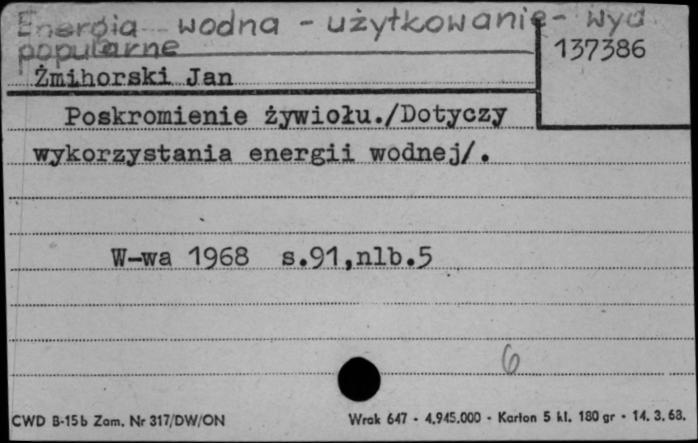 Energia wodna - użytkowanie - wyd
popularne
137386
Żmihorski Jan
Poskromienie żywiołu./Dotyczy
wykorzystania energii wodnej/.
W-wa 1968 s.91,nlb.5
6
CWD B-15b Zam. Nr 317/DW/ON Wrak 647 - 4.945.000 - Karton 5 kl. 180 gr - 14. 3. 68.